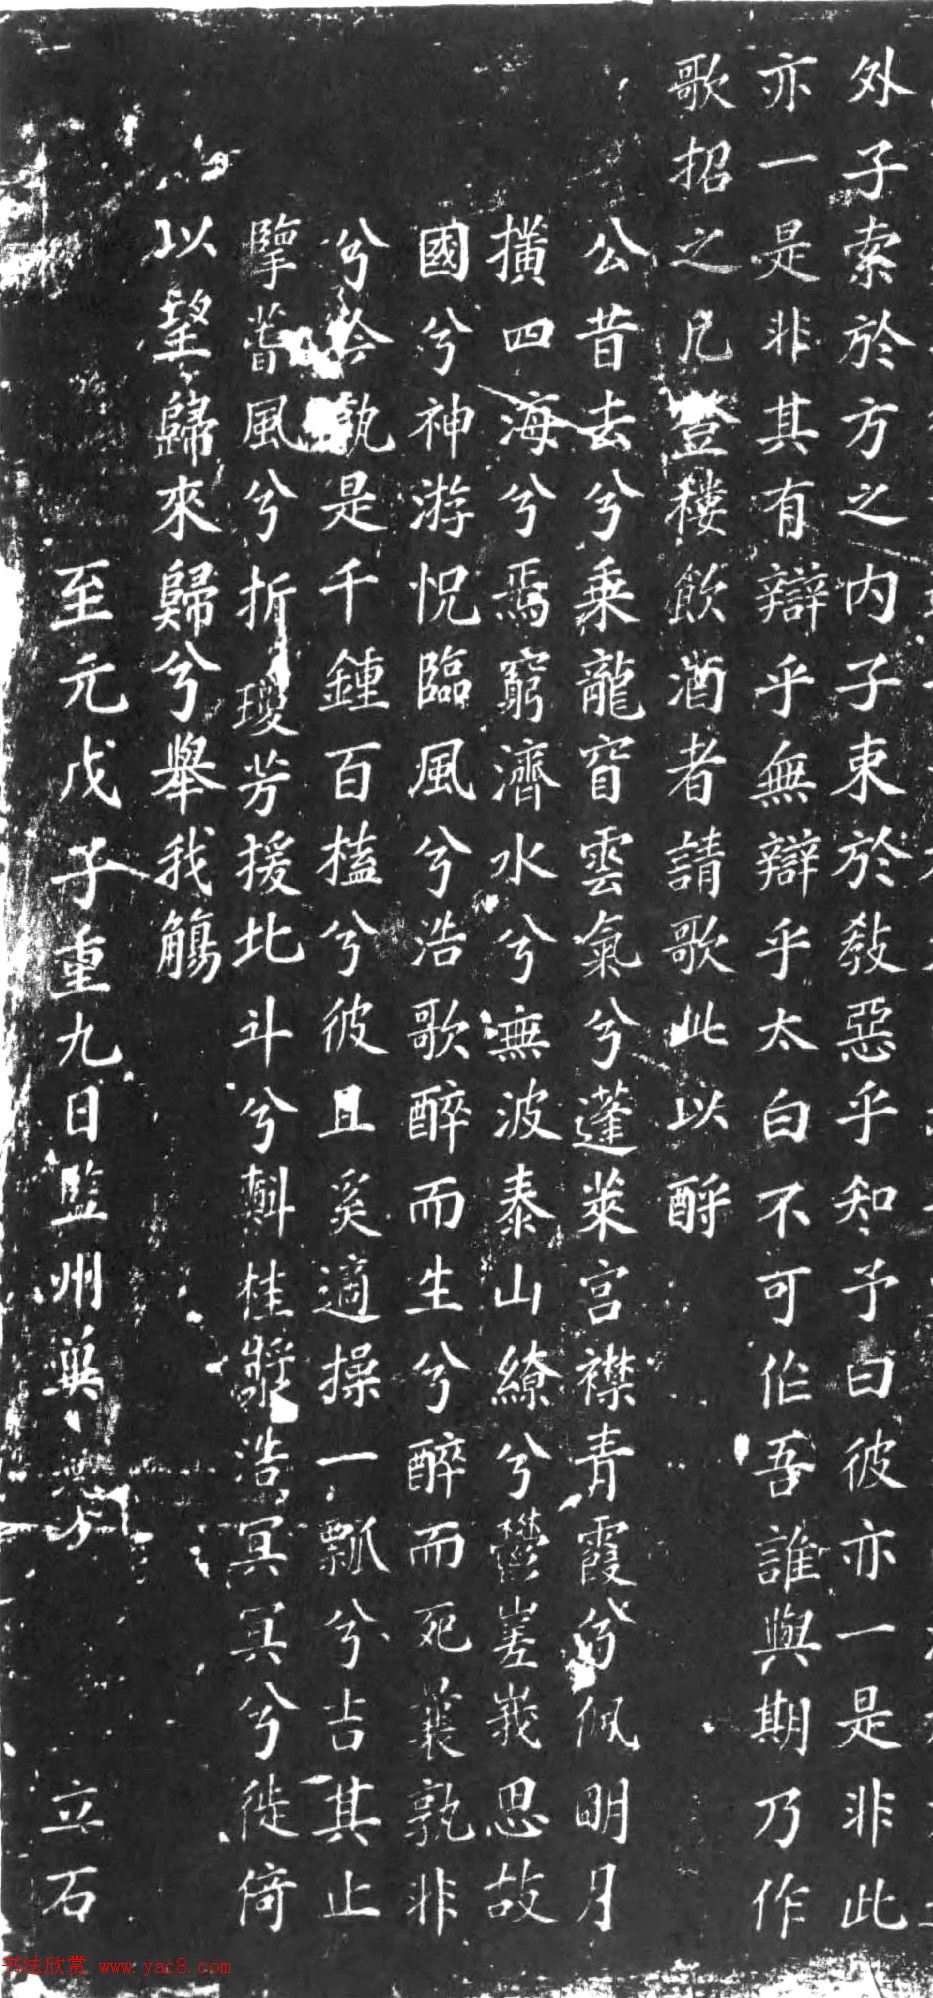 外子索於方之内子束於教惡乎知予曰彼亦一是非此
亦一是非其有辯乎無辯乎太白不可作吾誰與期乃作
歌招之凡登樓飲酒者請歌此以酹
公昔去兮乗龍窅雲氣兮蓬萊宫襟青霞兮佩明月
撗四海兮焉窮濟水兮無波泰山繚兮鬱嵳峩思故
國兮神游怳臨風兮浩歌醉而生兮醉而死曩孰非
兮今孰是千鍾百榼兮彼且奚適操一瓢兮吉其止
擥舊風兮折瓊芳援北斗兮㪺桂漿浩冥冥兮徙倚
以望歸來歸兮舉我觴
至元戊子重九日監州立石
书法欣赏 www.yac8.com